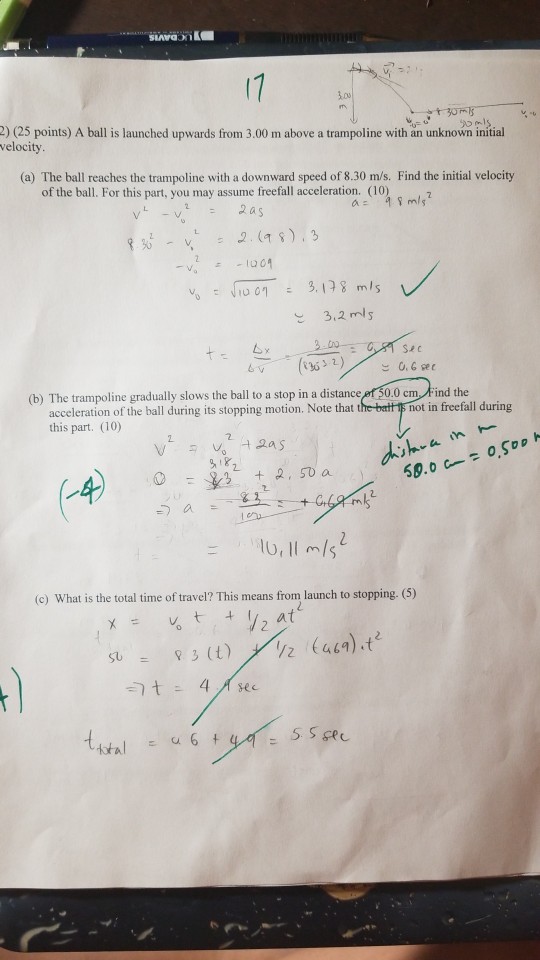 UC DAVIS
17
3.00
m
2) (25 points) A ball is launched upwards from 3.00 m above a trampoline with an unknown initial
velocity.
(a) The ball reaches the trampoline with a downward speed of 8.30 m/s. Find the initial velocity
of the ball. For this part, you may assume freefall acceleration. (10)
a = 9.8 m/s²
v² - v₀² = 2as
8.30² - v₀² = 2.(9.8).3
-v₀² = -10.09
v₀ = √10.09 = 3.178 m/s ✓
≃ 3.2 m/s
t = Δx/Δv = 3.00/(8.30-3.2) = 0.59 sec
≃ 0.6 sec
(b) The trampoline gradually slows the ball to a stop in a distance of 50.0 cm. Find the
acceleration of the ball during its stopping motion. Note that the ball is not in freefall during
this part. (10)
distance in m
50.0 cm = 0.500 m
v² = v₀² + 2as
3.18
0 = 8.3² + 2.50 a
(-4)
=> a = 8.3²/100 = + 0.69 m/s²
= 10.11 m/s²
(c) What is the total time of travel? This means from launch to stopping. (5)
x = v₀t + 1/2 at²
50 = 8.3 (t) + 1/2 (0.69).t²
=> t = 4.9 sec
t total = 0.6 + 4.9 = 5.5 sec